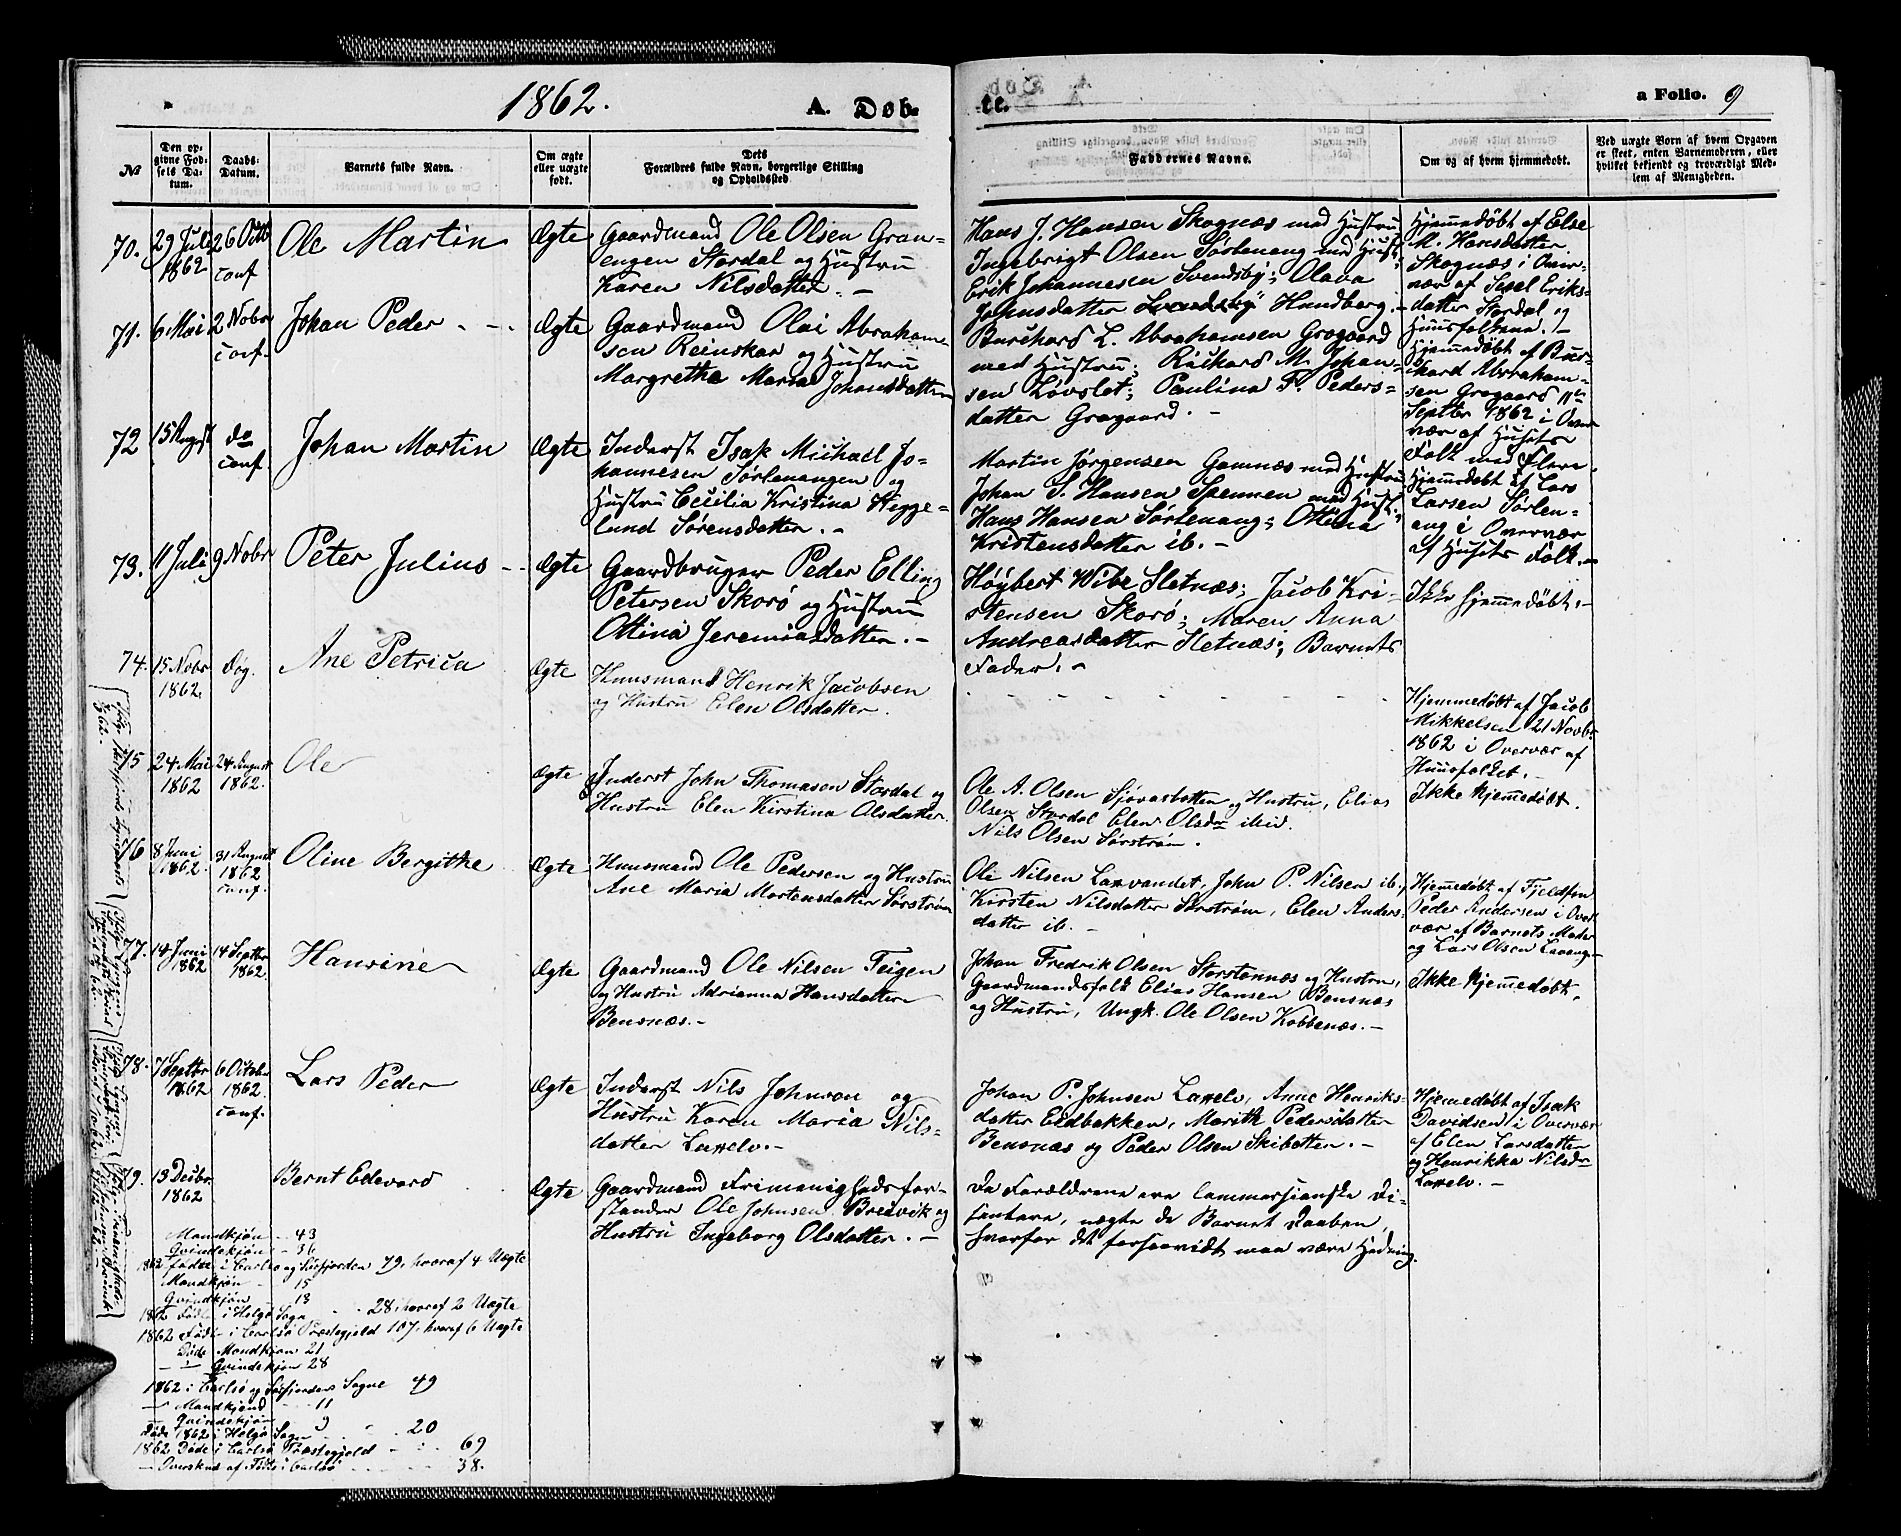 1862.
A. Døb-
te.
a Folio. 9
No
Den op-
givne Fød-
sels Da-
tum.
Daabs-
Datum.
Barnets fulde Navn.
Om ægte
eller uægte
født.
Dets
Forældres fulde Navn, borgerlige Stilling
og Opholdssted
Faddernes Navne.
Om og af hvem hjemmedøbt.
Ved uægte Børn af hvem Opgaven
er skeet, enten Barnemoderen, eller
hvilket bekjendt og troværdigt Med-
lem af Menigheden.
70.
29 Juli
1862
26 Octb
conf
Ole Martin
Ægte
Gaardmand Ole Olsen Gran-
engen Stordal og Hustru
Karen Nilsdatter. —
Hans J. Hansen Skognæs med Hustru
Ingebrigt Olsen Sørlenang med Hust:
Erik Johannesen Svendsby; Olava
Johnsdatter Svendsby Hundberg. —
Hjemmedøbt af Else
M. Hansdatter
Skognæs i Over-
vær af Sesel Eriks-
datter Stordal og
Huusfolkene. —
71.
6 Mai
2 Nobr
conf.
Johan Peder
Ægte
Gaardmand Olai Abraham-
sen Reinskar og Hustru
Margrethe Maria Johansdatter
Burchard L. Abrahamsen Grøgaard
med Hustru; Richard M. Johan-
sen Løvslet; Paulina F. Peders-
datter Grøgaard. —
Hjemmedøbt af Bur-
ikard Abraham-
sen Grøgaard 11te
Septbr 1862 i Over
vær af Husets
Folk med Flere.
72
15 August
do
conf.
Johan Martin
Ægte
Inderst Isak Michael Jo-
hannesen Sørlenangen og
Hustru Cecilia Kristina Hegge-
lund Sørensdatter. —
Martin Jørgensen Gamnæs med Hustru
Johan S. Hansen Spennen med Hust.;
Hans Hansen Sørlenang; Ottina
Kristensdatter ib. —
Hjemmedøbt af Lars
Larsen Sørlen-
ang i Overvær
af Husets Folk. —
73.
11 Juli
9 Nobr
Peter Julius
Ægte
Gaardbruger Peder Elling
Petersen Skorø og Hustru
Ottina Jeremiasdatter. —
Høybert Wibe Sletnæs; Jacob Kri-
stensen Skorø; Maren Anna
Andreasdatter Sletnæs; Barnets
Fader. —
Ikke hjemmedøbt. —
74.
15 Nobr
1862.
død.
Ane Petrica
Ægte
Huusmand Henrik Jacobsen
og Hustru Elen Olsdatter.
Hjemmedøbt af Jacob
Mikkelsen 21 Novbr
1862 i Overvær af
Huusfolket. —
75
24 Mai
1862
24 August
1862.
Ole
Ægte
Inderst John Thomason Stordal og
Hustru Elen Kirstina Olsdatter.
Ole A. Olsen Sjøvasbotten og Hustru, Elias
Olsen Stordal Elen Olsdr ibid.
Nils Olsen Sørstrøm.
Ikke hjemmedøbt.
76
8 Juni
1862.
31 August
1862
conf.
Oline Bergithe
Ægte
Huusmand Ole Pedersen og Hustru
Ane Maria Mortensdatter Sørstrøm
Ole Nilsen Laxvandet, John P. Nilsen ib.,
Kirsten Nilsdatter Sørstrøm, Elen Anders-
datter ib. —
Hjemmedøbt af Fjeldfin
Peder Andersen i Over
vær af Barnets Moder
og Lars Olsen Lavang —
77.
14 Juni
1862
14 Septbr
1862.
Hansine
Ægte
Gaardmand Ole Nilsen Teigen
og Hustru Adrianna Hansdatter
Bensnæs. —
Johan Fredrik Olsen Storstennæs og Hustru,
Gaardmandsfolk Elias Hansen Bensnæs
og Hustru, Ungk. Ole Olsen Kobbenæs. —
Ikke hjemmedøbt.
78.
7 Septbr
1862
6 October
1862.
conf.
Lars Peder
Ægte
Inderst Nils Johnson og
Hustru Karen Maria Nils-
datter Laxelv. —
Johan P. Johnsen Laxelv, Anne Henriks-
datter Eidbakken, Marith Pedersdatter
Bensnæs og Peder Olsen Skibotten. —
Hjemmedøbt af Isak
Davidsen i Overvær
af Elen Larsdatter
og Henrikka Nilsdr
Laxelv. —
79.
13 Decbr
1862
Bernt Edevard
Ægte
Gaardmand Frimenighedsfor-
stander Ole Johnsen Breivik og
Hustru Ingeborg Olsdatter. —
Da Forældrene ere Lammersianske Di-
sentere, nægte de Barnet Daaben,
hvorfor det forsaavidt maa være Hedning.
Mandkjøn - 43
Qvindekjøn - 36
1862 fødde i Carlsø og Ulsfjorden 79, hvoraf 4 Uægte
Mandkjøn - 15
Qvindekjøn - 13
1862 Fødte i Helgø Sogn - 28 hvoraf 2 Uægte
1862 Fødte i Carlsø Præstegjeld 107, hvoraf 6 Uægte
Døde Mandkjøn 21
— " — Qvindekjøn 28
1862 i Carlsø og Ulsfjordens Sogne 49
— Mandkjønd - 11
— Qvindekjøn - 9
Døde 1862 i Helgø Sogn - 20
1862 Døde i Carlsø Præstegjeld - 69
— Overskud af Fødte i Carlsø - 38.